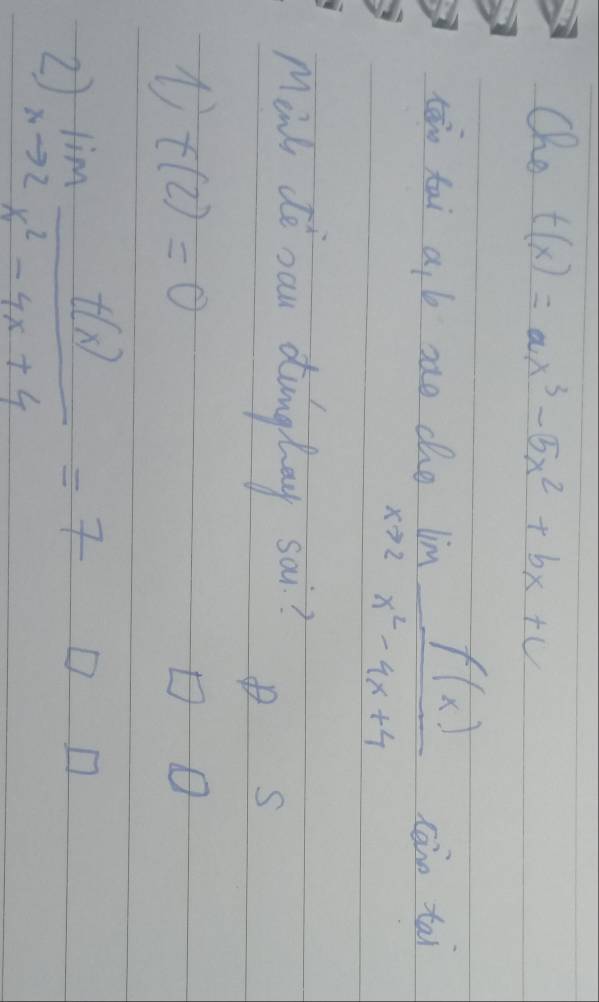 Cho f(x) = ax³ - 5x² + bx + c
tồn tại a, b sao cho lim x→2 f(x) / x² - 4x + 4 tồn tại
Mệnh đề sau đúng hay sai?
Đ S
1) f(2) = 0 □ □
2) lim x→2 f(x) / x² - 4x + 4 = 7 □ □